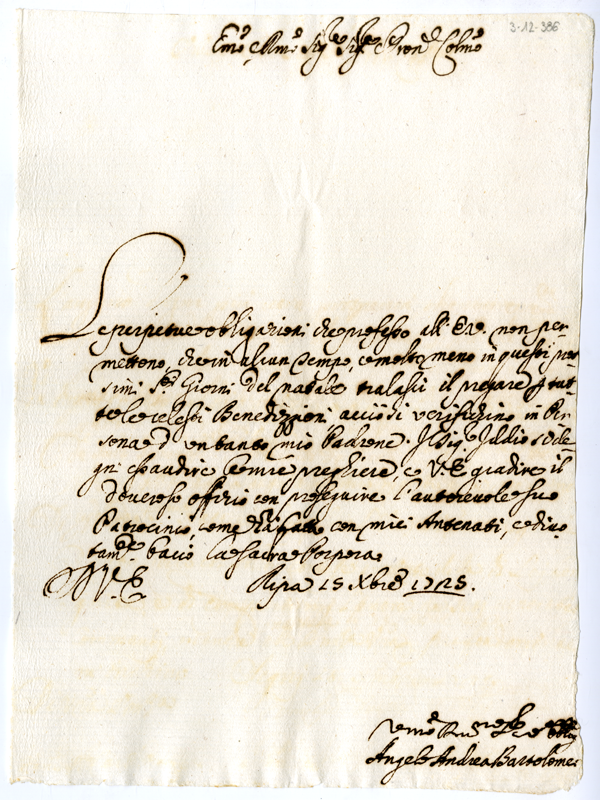 3-12-386
Emo e Rmo Sig.re Sig.re e Pron Colmo
Le perpetue obligazioni che professo all' E.V. non per-
mettono, che in alcun tempo, e molto meno in questi pros
simi S.ti Giorni del natale tralasci il pregare tut
te le celesti Benedizzioni acciò si verifichino in Per
sona d' un tanto mio Padrone. Il Sig.e Iddio si de-
gni esaudire le mie preghiere, e V.E. gradire il
doveroso offizio con proseguire l'autorevole suo
Patrocinio, come ha fatto con miei Antenati, e divo
tam.te bacio la sacra Porpora.
D V.E. Ripa 15 Xbre 1725.
Angelo Andrea Bartolomei